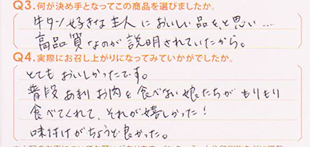 Q3.何が決め手となってこの商品を選びましたか。
牛タン好きな主人においしい品を、と思い…
高品質なのが説明されていたから。
Q4.実際にお召し上がりになってみていかがでしたか。
とてもおいしかったです。
普段あまりお肉を食べない娘たちがもりもり
食べてくれて、それが嬉しかった!
味付けがちょうど良かった。